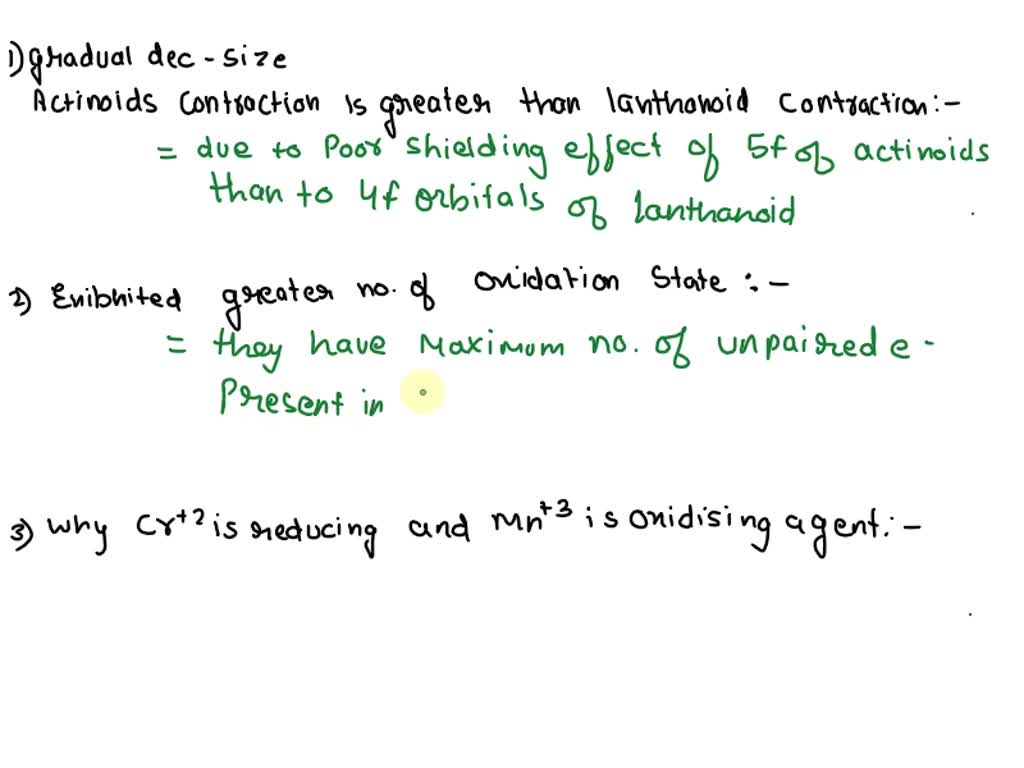 1) gradual dec - size
Actinoids Contraction is greater than lanthanoid Contraction:-
= due to Poor shielding effect of 5f of actinoids
than to 4f orbitals of lanthanoid
2) Exibhited greater no. of oxidation State :-
= they have Maximum no. of unpaired e -
Present in
3) Why Cr+2 is reducing and Mn+3 is oxidising agent:-